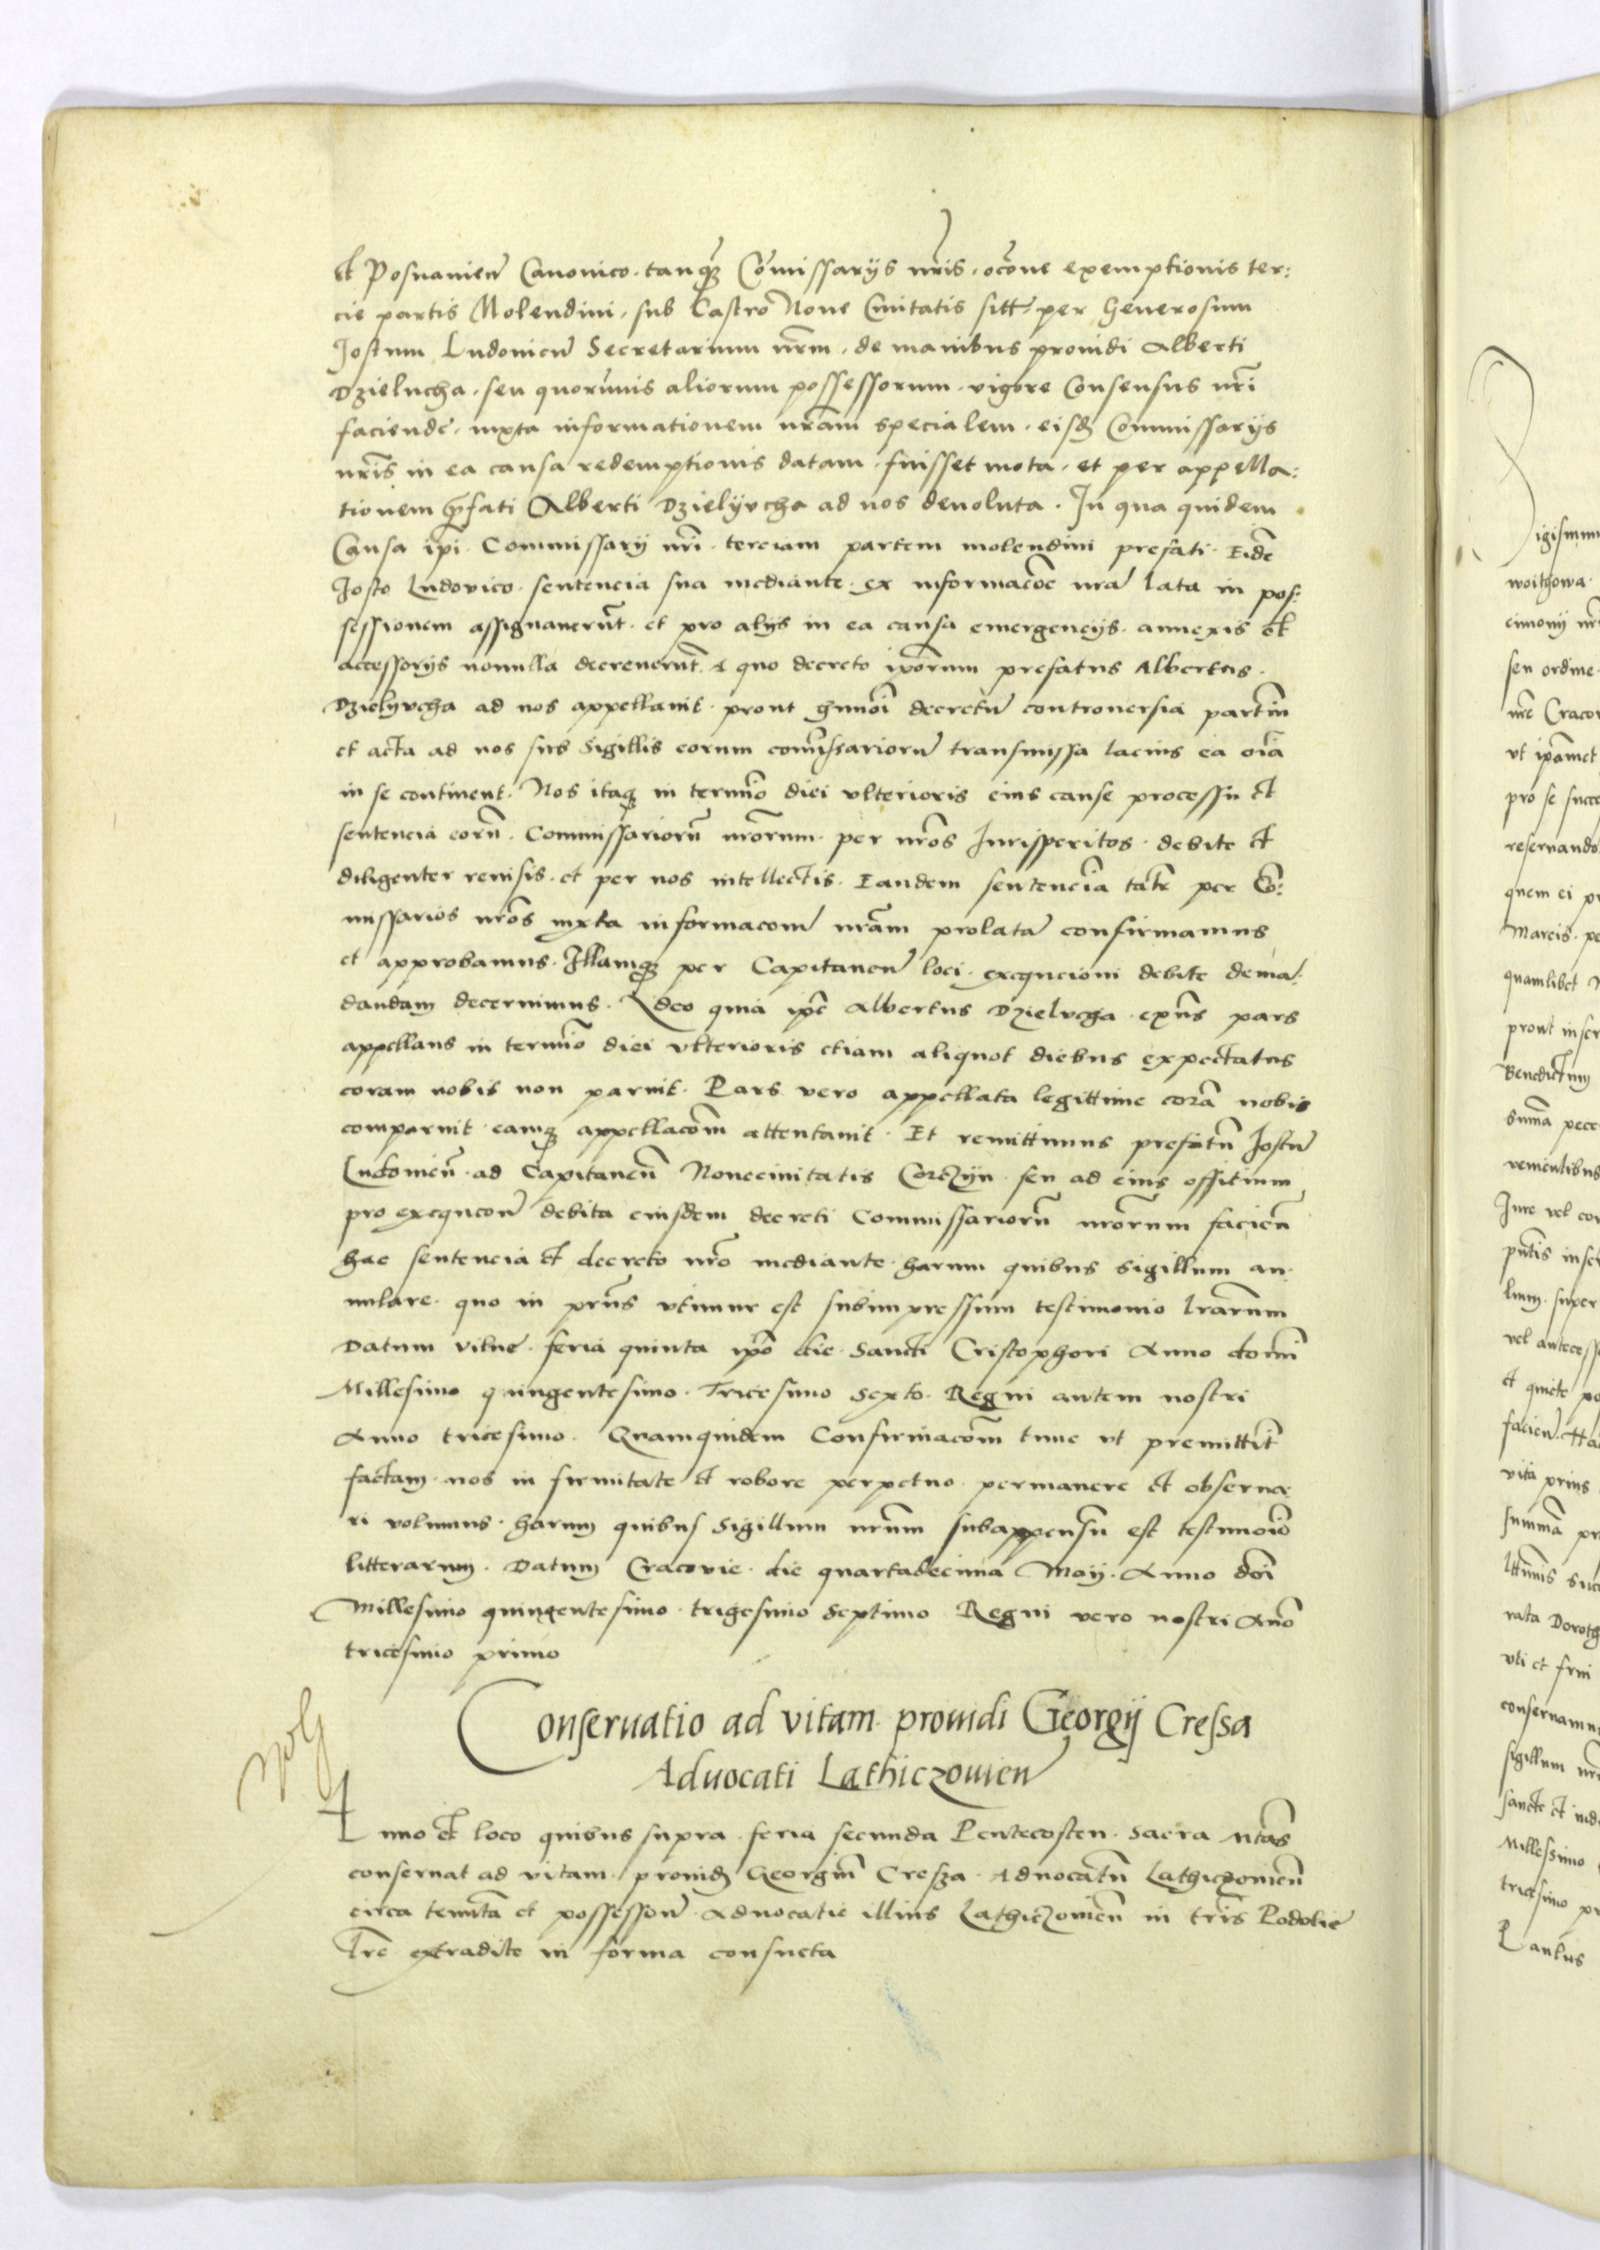 et Posnanien Canonico. tanqᷓ Comissarijs nris. occone exemptionis ter:
cie partis Molendini, sub Castro Noue Ciuitatis sitt per Generosum
Jostum Ludouicu Secretarium nrm, de manibus prouidi Alberti
Dzielucha, seu quorumuis aliorum possessorum. vigore Consensus nri
faciende, iuxta informationem nram specialem, eisdẽ Commissarijs
nris in ea causa redemptionis datam, fuisset mota, et per appella:
tionem prefati Alberti Dzielijvcha ad nos deuoluta. In qua quidem
Causa ipi. Commissarij nri. terciam partem molendini prefati. Eidē
Josto Ludovico. sentencia sua mediante. ex informacōe nrā lata in pos:
sessionem assignauerūt. et pro alijs in ea causa emergencijs. annexis et
accessorijs nonnulla decreuerūt. A quo decreto ipōrum prefatus Albertus.
Dzielyvcha ad nos appellauit. prout hmōi decretū controuersia partiū
et acta ad nos sub sigillis eorum comissariorū transmissa lacius ea oīa
in se continent. Nos itaqᷓ in termīo diei vlterioris eius cause processu et
sentencia eorū. Commissariorū nrōrum. per nrōs Jurisperitos. debite et
diligenter reuisis. et per nos intellectis. Eandem sentenciā tałr per Cō:
missarios nrōs iuxta informacōnē nrām prolatā confirmamus
et approbamus. Illamqᷓ per Capitaneū loci. execucioni debite demā
dandam decernimus. Ideo quia ipē Albertus Dzielvcha. exnūs pars
appellans in termīo diei vlterioris etiam aliquot diebus expectatus
coram nobis non paruit. Pars vero appellata legittime corā nobis
comparuit. eamqᷓ appellacōm attentauit. Et remittimus prefatū Jostū
Ludouicū. ad Capitaneū Noueciuitatis Corczyn. seu ad eius offitium
pro execucōnē debita eiusdem decreti Commissariorū nrōrum faciēn
hac sentencia et decreto nrō mediante. harum quibus sigillum an
nulare. quo in prns vtimur est subimpressum testimonio lrārum
Datum Vilne. feria quinta ipō die. Sancti Cristophori Anno domī
Millesimo quingentesimo. Tricesimo Sexto. Regni autem nostri
Anno tricesimo. Quamquidem Confirmacōm tunc vt premittīt
factam. nos in firmitate et robore perpetuo. permanere et obserua
ri volumus. harum quibus Sigillum nrūm subappensū est testimoīo
litterarum. Datum Cracovie. die quartadecima Maij. Anno doī
Millesimo quingentesimo. trigesimo Septimo Regni vero nostri Anō
tricesimo primo
Conseruatio ad vitam prouidi Georgij Cressa
Aduocati Lathiczouien
Anno et loco quibus supra. feria secunda Pentecosten. Sacra Mtās
conseruat ad vitam. prouidū Georgiū Cressa. Aduocatū Lathiczouiēn
circa tenutā et possessōnē. Aduocatie illius Lathiczouiēn in trīs Podolie
Lre extradite in forma consueta